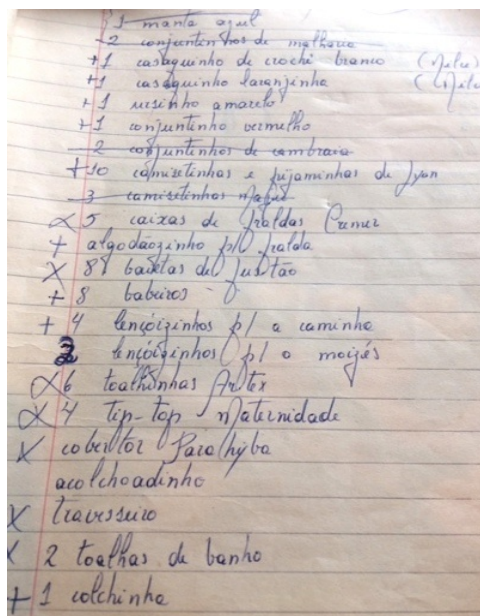 1 manta azul
2 conjuntinhos de malharia
+1 casaquinho de crochê branco
+1 casaquinho laranjinha
+1 ursinho amarelo
+1 conjuntinho vermelho
2 conjuntinhos de cambraia
+10 camisetinhas e pijaminhas de Lyon
3 camisetinhas
X 5 caixas de fraldas Cremer
+ algodãozinho p/ fralda
X 8 de fustão
+ 8 babeiros
+ 4 lençoizinhos p/ a caminha
2 lençoizinhos p/ o moizés
X 6 toalhinhas Artex
X 4 tip-top Maternidade
X cobertor Parahyba
acolchoadinho
X travesseiro
X 2 toalhas de banho
+ 1 colchinha